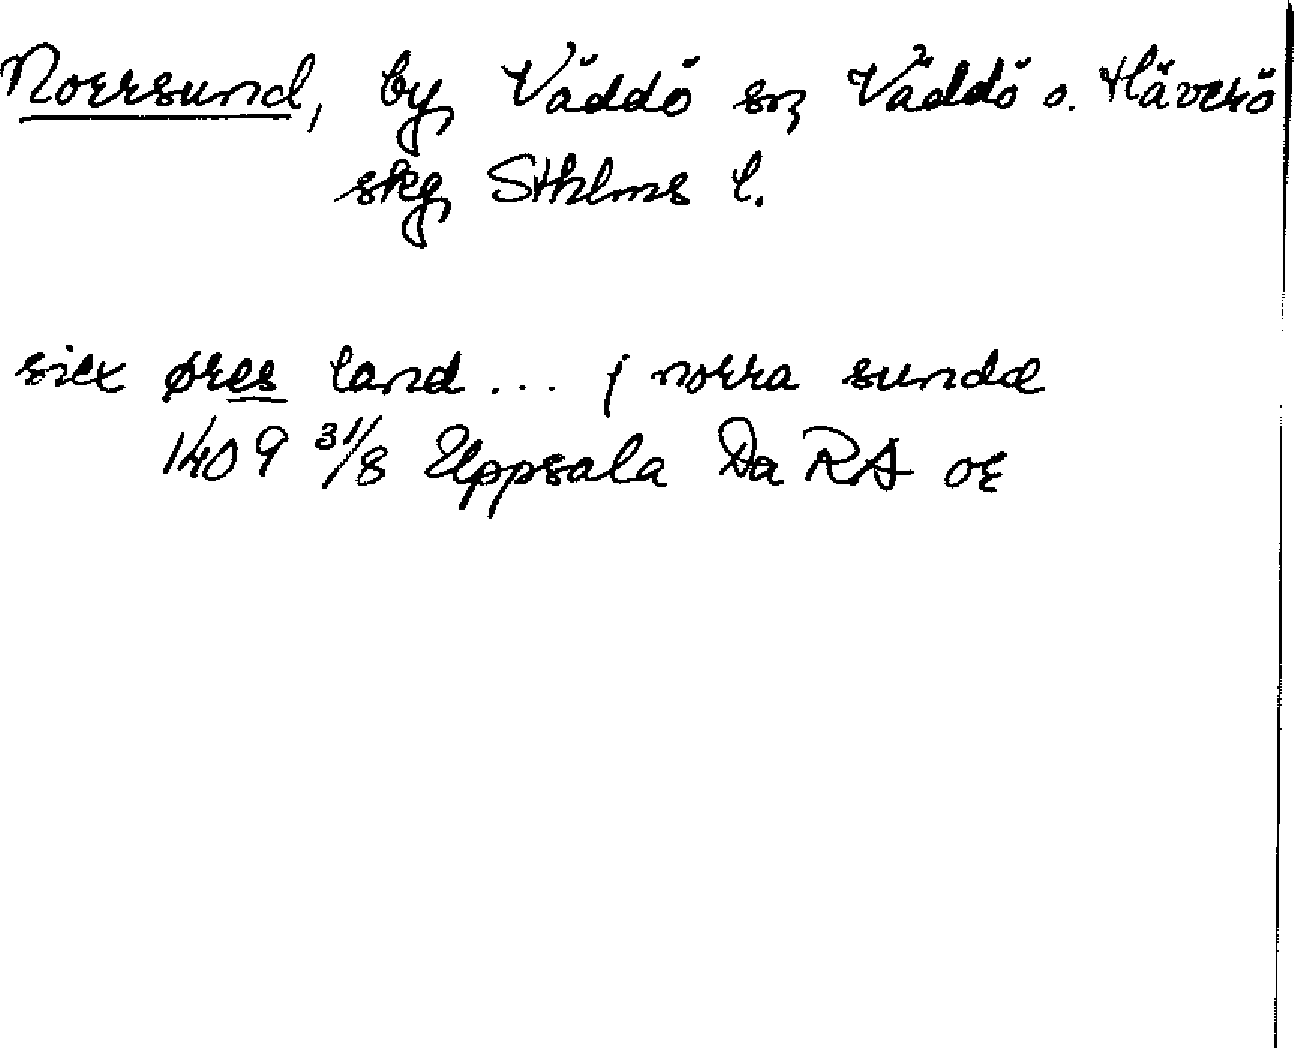 Norrsund, by, Väddö sn, Väddö o. Häverö
skg, Sthlms l.
siex øres land... j norra sunde
1409 31/8 Uppsala Da RA or